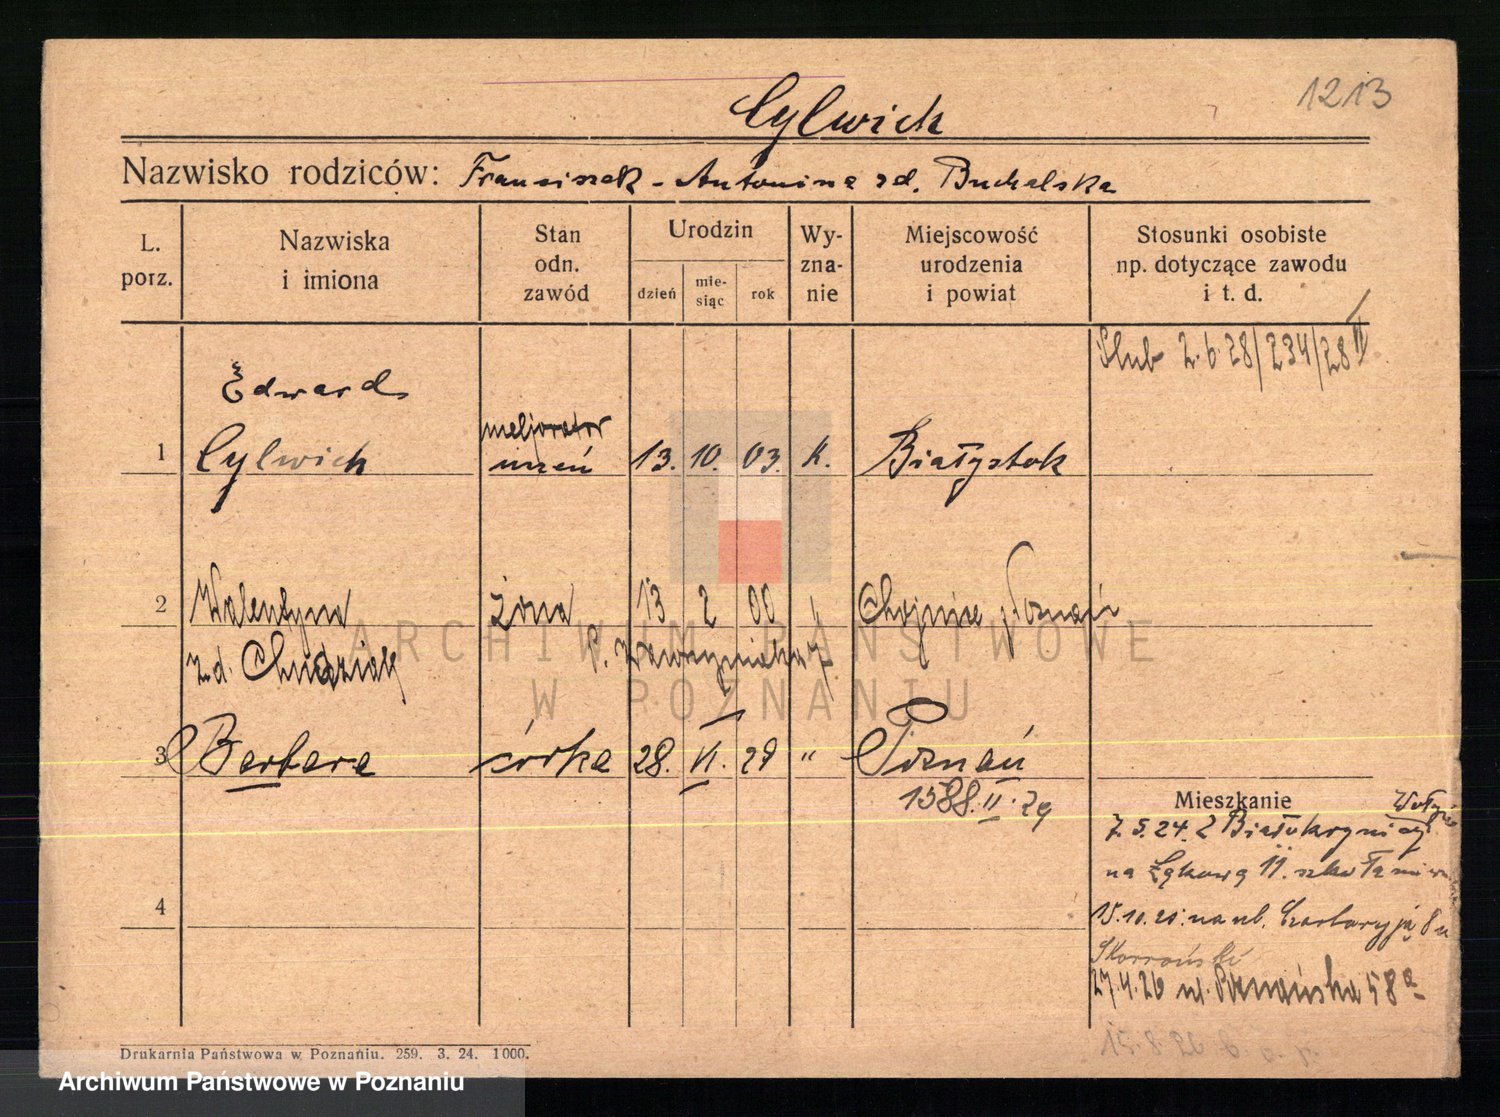 1213
Cylwich
Nazwisko rodziców: Franciszek - Antonina zd. Buchalska
L. porz.
Nazwiska i imiona
Stan odn. zawód
Urodzin
dzień
mie- siąc
rok
Wy- zna- nie
Miejscowość urodzenia i powiat
Stosunki osobiste np. dotyczące zawodu i t. d.
Ślub 2.6.28/234/28 II
Edward
1 Cylwich meljorator uczeń 13. 10. 03. K. Białystok
2 Walentyna żona 13 2 00 " Chojnice Poznań
zd. Chudziak
ARCHIWUM PAŃSTWOWE
W POZNANIU
3 Barbara córka 28. VI. 29 " Poznań
1588.II.29
Mieszkanie
7.5.24. z Białokrynicy
na Łąkową 11.
4
15.10.25. na ul. Czartoryją 8 u
27.4.26 ul. Poznańska 58a
Drukarnia Państwowa w Poznaniu. 259. 3. 24. 1000.
Archiwum Państwowe w Poznaniu